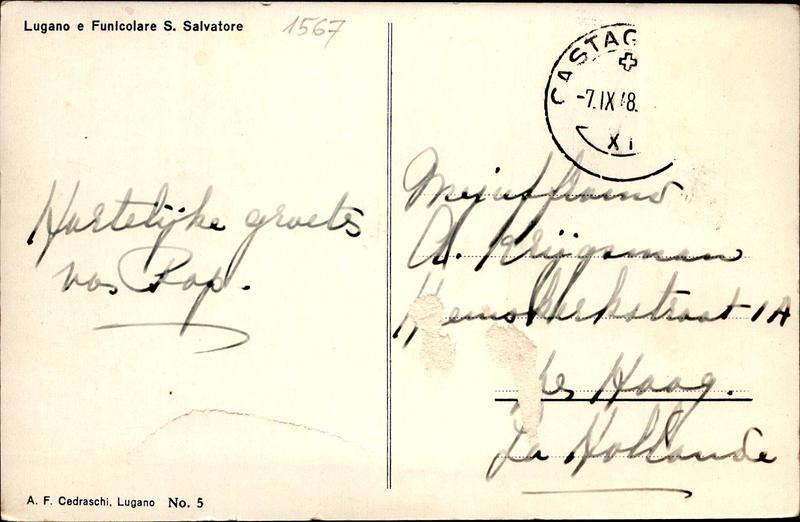 Lugano e Funicolare S. Salvatore
1567
CASTAG
-7.IX 48.
XI
Hartelijke groeten
van Pap.
Mejuffrouw
A. Krijgsman
Heemskerkstraat 1A
Den Haag.
La Hollande
A. F. Cedraschi, Lugano No. 5